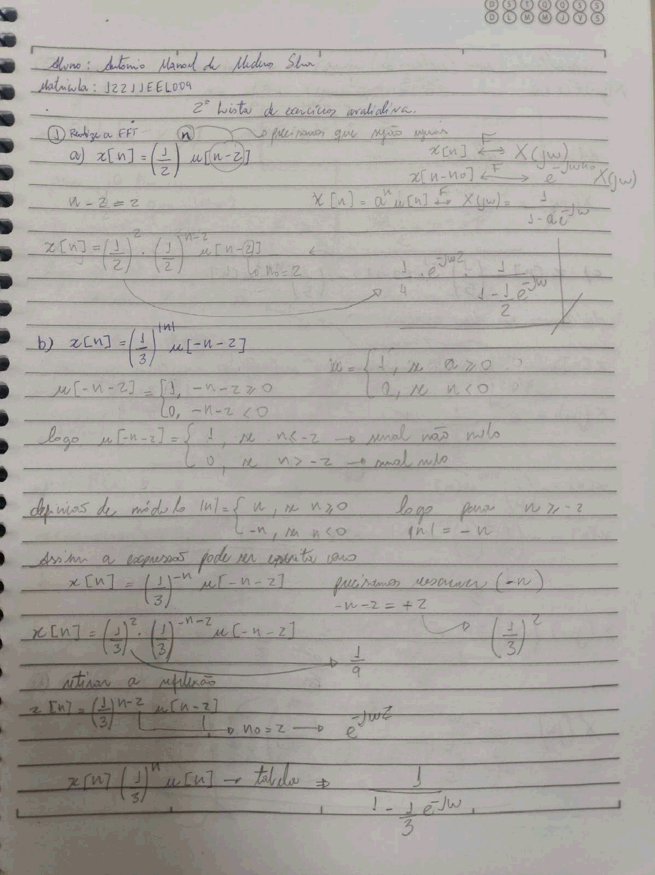 D S T Q Q S S
D L M M J V S
Aluno: Antonio Manoel de Medeiros Silva
Matrícula: 12211EEL004
2ª Lista de exercícios avaliativa.
① Realize a FFT → precisamos que sejam iguais
a) x[n] = (1/2)^n u[n-2]
x[n] <-F-> X(jw)
x[n-n0] <-F-> e^-jwn0 X(jw)
n-2=2
x[n] = a^n u[n] <-F-> X(jw) = 1/(1-ae^-jw)
x[n] = (1/2)^2 · (1/2)^n-2 u[n-2]
↳ n0=2
1/4 · e^-jw2 · 1/(1-1/2 e^-jw)
b) x[n] = (1/3)^|n| u[-n-2]
= { 1, se n ≥ 0
0, se n < 0
u[-n-2] = { 1, -n-2 ≥ 0
0, -n-2 < 0
logo u[-n-2] = { 1, se n<-2 → sinal não nulo
0, se n>-2 → sinal nulo
de módulo |n| = { n, se n ≥ 0
-n, se n < 0
logo para n ≥ -2
|n| = -n
Assim a expressão pode ser escrita como
x[n] = (1/3)^-n u[-n-2]
precisamos (-n)
-n-2 = +2
(1/3)^2
x[n] = (1/3)^2 · (1/3)^-n-2 u[-n-2]
1/9
retirar a reflexão
x[n] = (1/3)^n-2 u[n-2]
→ n0=2 → e^-jw2
x[n] (1/3)^n u[n] → tabela ⇒ 1/(1 - 1/3 e^-jw)